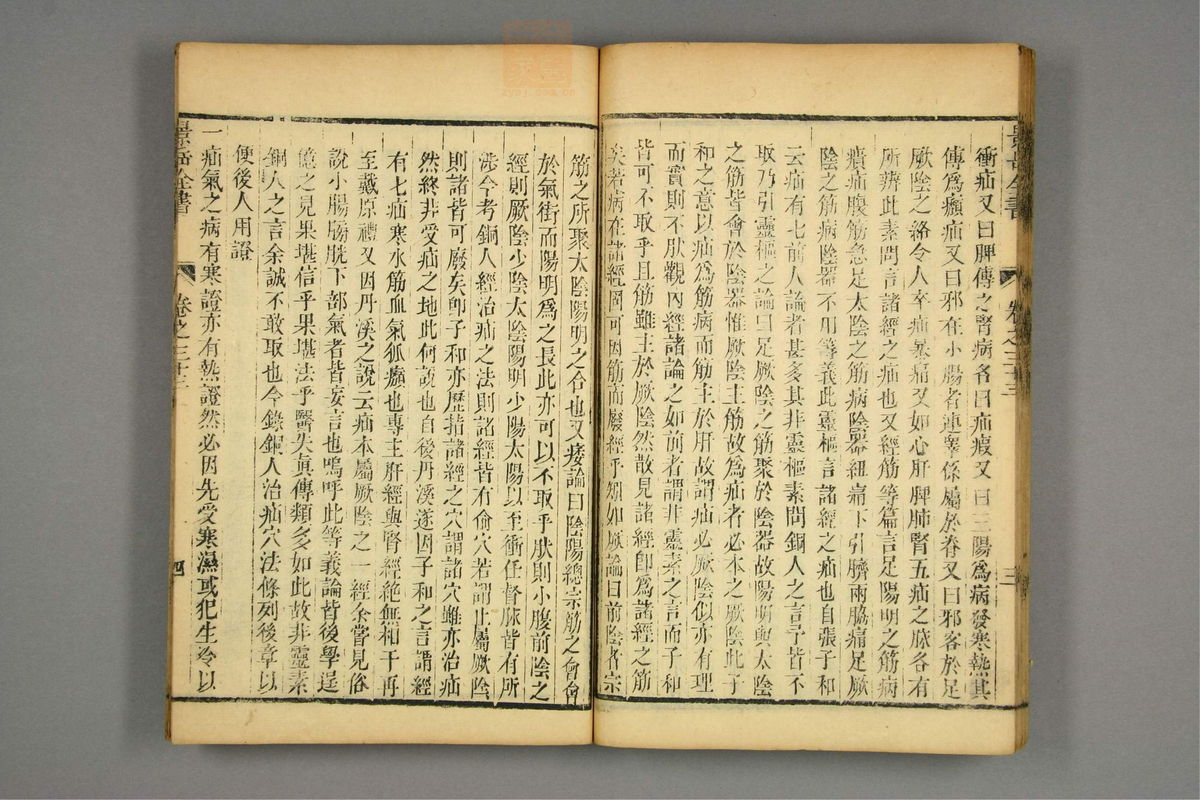 衝疝又曰脾傳之腎病名曰疝瘕又曰三陽爲病發寒熱其
傳爲癲疝又曰邪在小腸者連睾係屬於脊又曰邪客於足
厥陰之絡令人卒疝暴痛又如心肝脾肺腎五疝之脉各有
所辨此素問言諸經之疝也又經筋等篇言足陽明之筋病
㿉疝腹筋急足太陰之筋病陰器紐痛下引臍兩脇痛足厥
陰之筋病陰器不用等義此靈樞言諸經之疝也自張子和
云疝有七前人論者甚多其非靈樞素問銅人之言予皆不
取乃引靈樞之論曰足厥陰之筋聚於陰器故陽明與太陰
之筋皆會於陰器惟厥陰主筋故爲疝者必本之厥陰此子
和之意以疝爲筋病而筋主於肝故謂疝必厥陰似亦有理
而實則不肰觀內經諸論之如前者謂非靈素之言而子和
皆可不取乎且筋雖主於厥陰然散見諸經卽爲諸經之筋
矣若病在諸經固可因筋而廢經乎矧如厥論曰前陰者宗
筋之所聚太陰陽明之合也又痿論曰陰陽總宗筋之會會
於氣街而陽明爲之長此亦可以不取乎肰則小腹前陰之
經則厥陰少陰太陰陽明少陽太陽以至衝任督脉皆有所
涉今考銅人經治疝之法則諸經皆有俞穴若謂止屬厥陰
則諸皆可廢矣卽子和亦歷指諸經之穴謂諸穴雖亦治疝
然終非受疝之地此何說也自後丹溪遂因子和之言謂經
有七疝寒水筋血氣狐癲也專主肝經與腎經絶無相干再
至戴原禮又因丹溪之說云疝本屬厥陰之一經余嘗見俗
說小腸膀胱下部氣者皆妄言也嗚呼此等義論皆後學逞
億之見果堪信乎果堪法乎醫失眞傳類多如此故非靈素
銅人之言余誠不敢取也今錄銅人治疝穴法條列後章以
便後人用證
一疝氣之病有寒證亦有熱證然必因先受寒濕或犯生冷以
景岳全書
卷之三十三
三
景岳全書
卷之三十三
四